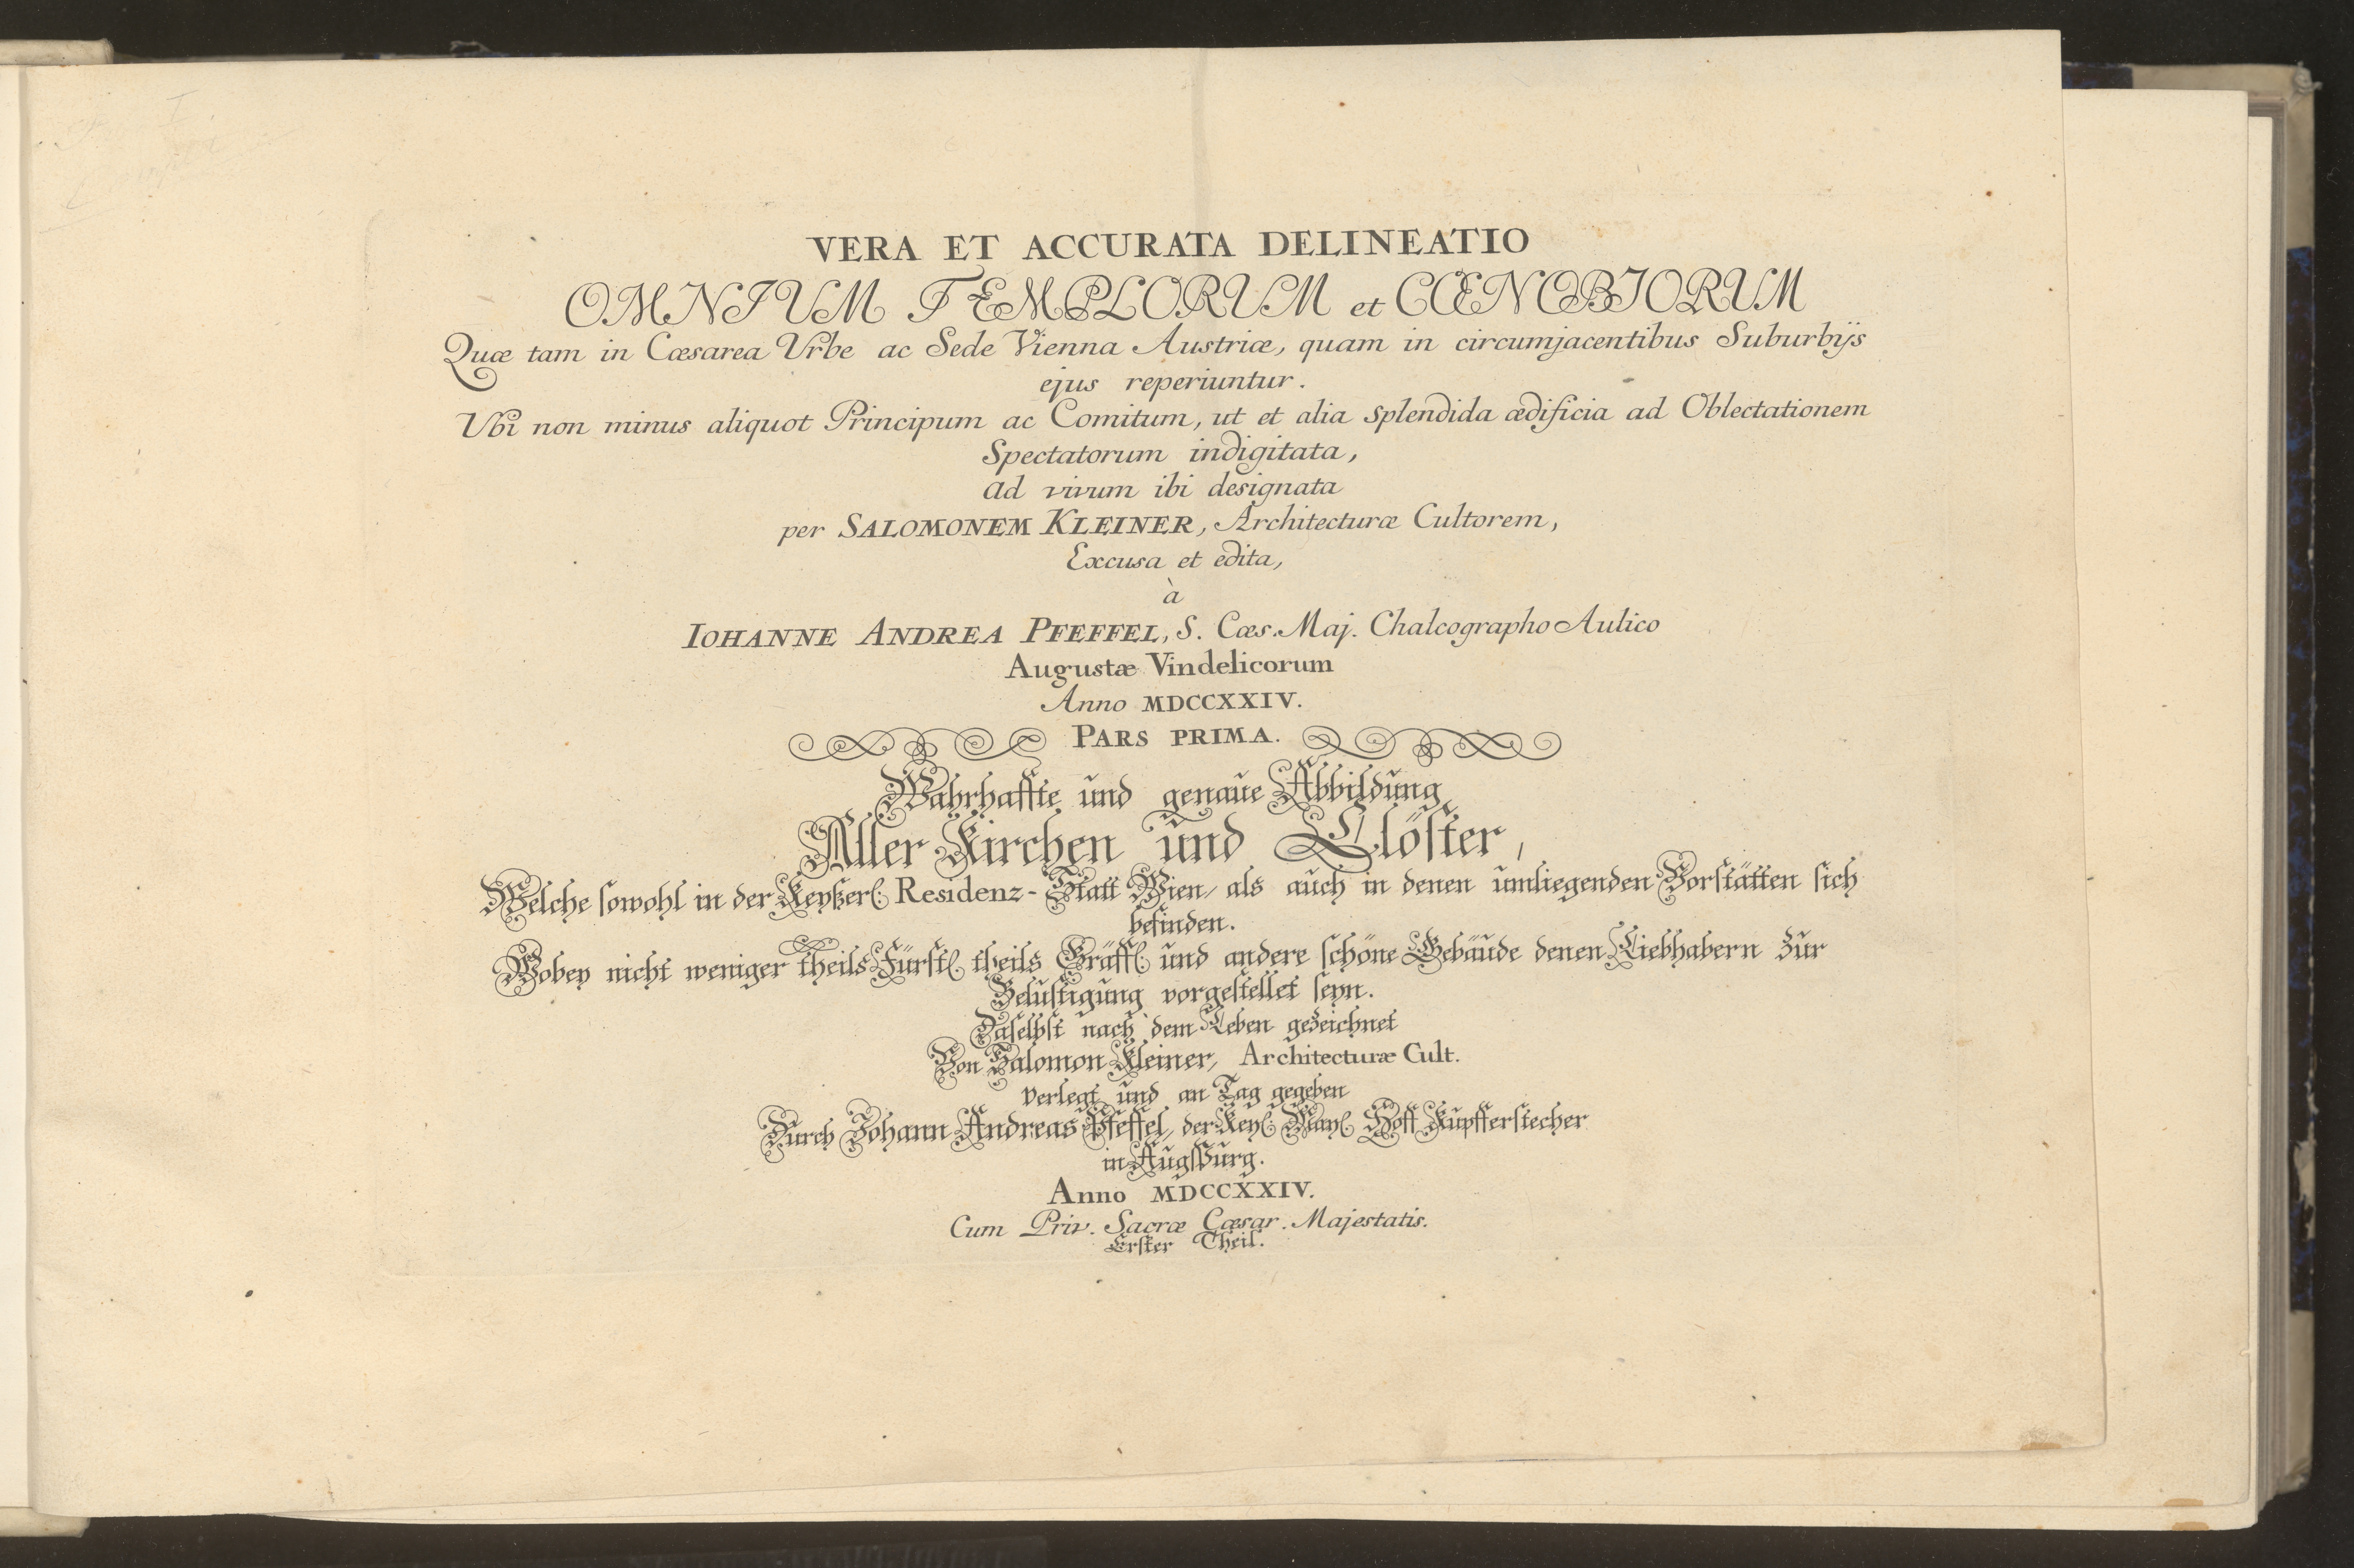 VERA ET ACCURATA DELINEATIO
OMNIUM TEMPLORUM et CŒNOBIORUM
Quæ tam in Cæsarea Vrbe ac Sede Vienna Austriæ, quam in circumjacentibus Suburbijs
ejus reperiuntur.
Ubi non minus aliquot Principum ac Comitum, ut et alia splendida ædificia ad Oblectationem
Spectatorum indigitata,
Ad vivum ibi designata
per SALOMONEM KLEINER, Architecturæ Cultorem,
Excusa et edita,
à
IOHANNE ANDREA PFEFFEL, S. Cæs. Maj. Chalcographo Aulico
Augustæ Vindelicorum
Anno MDCCXXIV.
PARS PRIMA.
Wahrhaffte und genaue Abbildung
Aller Kirchen und Clöster,
Welche sowohl in der Keyßerl. Residenz-Statt Wien, als auch in denen umliegenden Vorstätten sich
befinden.
Wobey nicht weniger theils Fürstl. theils Gräffl. und andere schöne Gebäude denen Liebhabern zur
Belustigung vorgestellet seyn.
Daselbst nach dem Leben gezeichnet
Von Salomon Kleiner, Architecturæ Cult.
verlegt und an Tag gegeben
Durch Johann Andreas Pfeffel, der Keyl. Mayl. Hoff Kupfferstecher
in Augspurg.
Anno MDCCXXIV.
Cum Priv. Sacræ Cæsar. Majestatis.
Erster Theil.